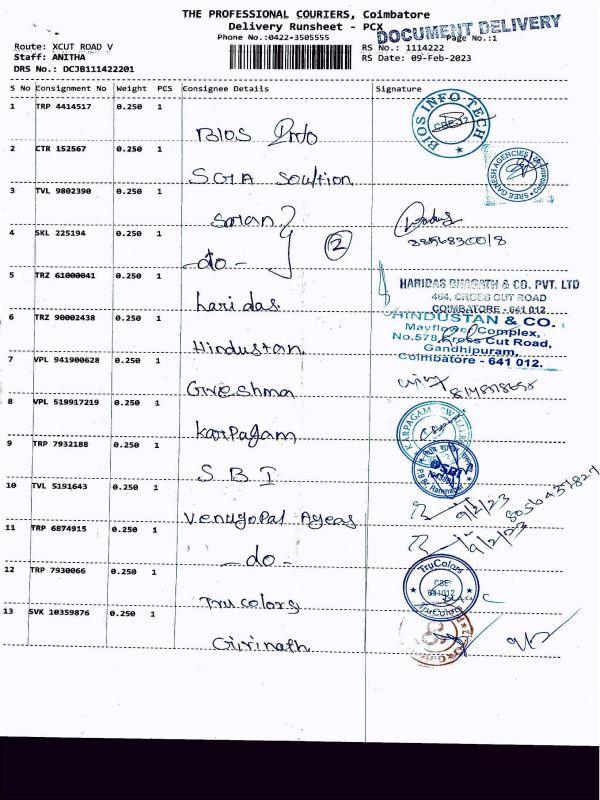 THE PROFESSIONAL COURIERS, Coimbatore
Delivery Runsheet - PCX
DOCUMENT DELIVERY
Phone No.:0422-3505555
Page No.:1
Route: XCUT ROAD V
RS No.: 1114222
Staff: ANITHA
RS Date: 09-Feb-2023
DRS No.: DCJB111422201
S No Consignment No Weight PCS Consignee Details Signature
1 TRP 4414517 0.250 1
BIOS Info
BIOS INFO TECH
2 CTR 152567 0.250 1
SREE GANESH AGENCIES
3 TVL 9802390 0.250 1
4 SKL 225194 0.250 1
-do-
2
5 TRZ 61000041 0.250 1
haridas
HARIDAS BHAGATH & CO. PVT. LTD
464, CROSS CUT ROAD
COIMBATORE - 641 012
6 TRZ 90002438 0.250 1
Hindustan
HINDUSTAN & CO.
Mayflower Complex,
No.578, Cross Cut Road,
Gandhipuram,
Coimbatore - 641 012.
7 VPL 941900628 0.250 1
Greeshma
8 VPL 519917219 0.250 1
Karpagam
KARPAGAM
9 TRP 7932188 0.250 1
S B I
10 TVL 5191643 0.250 1
Venugopal
9/2/23
11 TRP 6874915 0.250 1
-do-
9/2/23
12 TRP 7930066 0.250 1
Trucolors
TruColors
CBE
641012
TruColors
13 SVK 10359876 0.250 1
Girinath